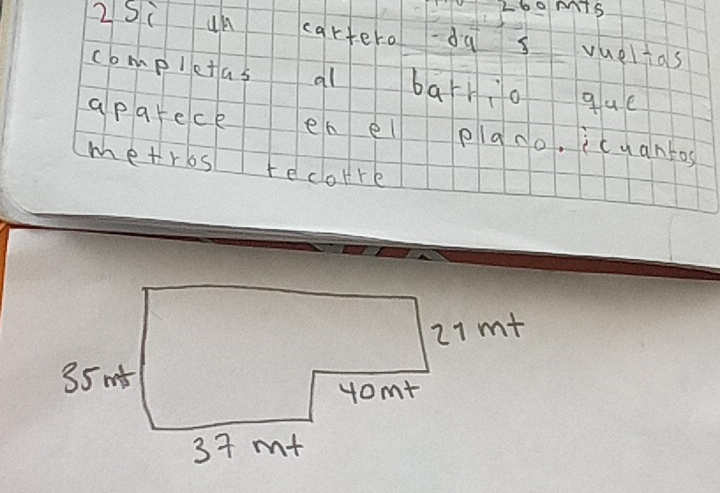 260 mts
2 Si un cartero da 5 vueltas
completas al barrio que
aparece en el plano. ¿cuantos
metros recorre
21 mt
35 mt
40 mt
37 mt